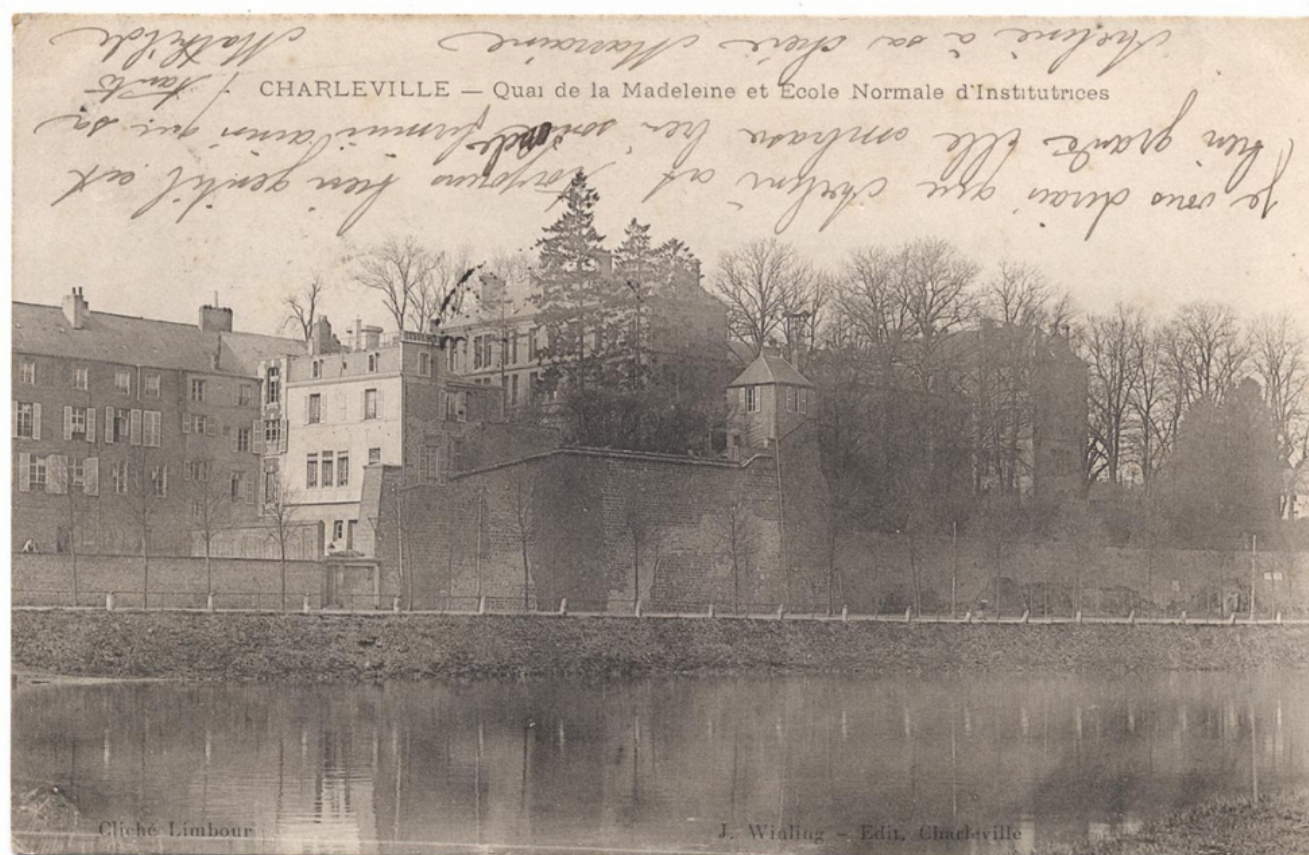 CHARLEVILLE — Quai de la Madeleine et Ecole Normale d'Institutrices
Je vous dirai que est toujours bien gentil et
bien grande elle embrasse bien son ainsi que sa
tante
à sa chère Marraine Mathilde
Cliché Limbour
J. Winling - Edit. Charleville